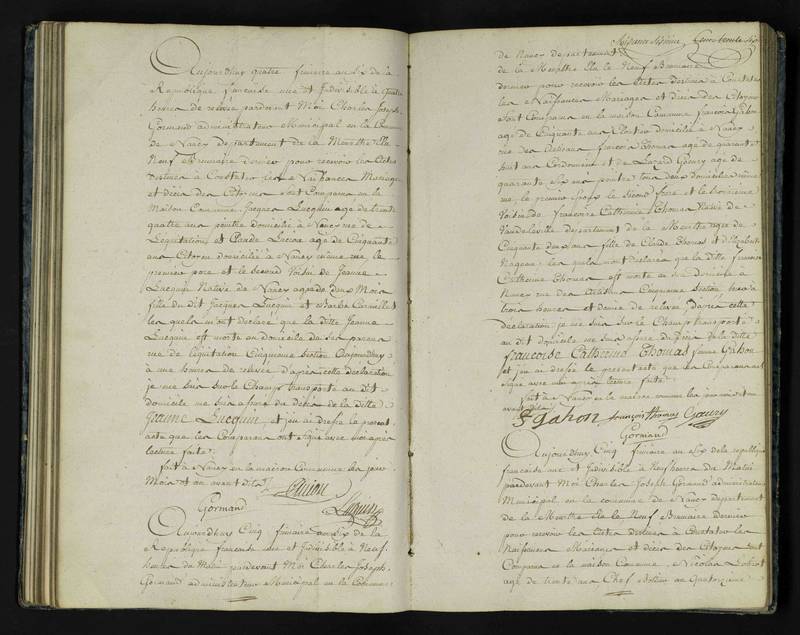 Aujourdhuy quatre frimaire an six de la
Republique francaise une et Indivisible a quatre
heures de relevée pardevant Moi Charles Joseph
Gormand administrateur Municipal en la Commune
de Nancy Departement de la Meurthe Elu
Neuf Brumaire dernier pour recevoir les Actes
destinés a Constater les Naissances Mariages
et décès des Citoyens sont Comparus en la
Maison Commune Jacques Lucquin agé de trente
quatre ans peintre domicilié a Nancy rue de
L'égalitation et Claude age de Cinquante
ans Citoyen domicilié a Nancy même rue le
premier pere et le second Voisin de Jeanne
Lucquin Native de Nancy agée de deux Mois
fille du dit Jacques Lucquin et Barbe
les quels m'ont declaré que la ditte Jeanne
Lucquin est morte au domicile de ses parens
rue de Cinquieme Section Aujourdhuy
a une heures de relevée d'après cette declaration
je me suis sur le Champ transporté au dit
domicile me suis assuré du décès de la ditte
Jeanne Lucquin et jai dressé le present
acte que les Comparans ont signé avec moi apres
lecture faite
fait a Nancy en la maison Commune les jour
Mois et an avant dits
Gormand Lucquin
Aujourdhuy Cinq frimaire an six de la
Republique francaise une et Indivisible a Neuf
heures du Matin pardevant Moi Charles Joseph
Gormand administrateur Municipal en la Commune
de Nancy departement
de la Meurthe Elu le Neuf Brumaire
dernier pour recevoir les Actes destinés a Constater
les Naissances Mariages et décès des Citoyens
sont Comparus en la maison Commune francois Gahon
agé de Cinquante ans domicilié a Nancy
rue des francois Thomas age de quarante
huit ans Cordonnier et de Gaury age de
quarante six ans peintre tous deux domiciliés même
rue le premier Epoux le second frere et le troisieme
Voisin de francoise Catherine Thomas Native de
Vaudeleville departement de la Meurthe agée de
Cinquante deux ans fille de Claude Thomas et d'Elizabeth
les quels mont declaré que la ditte francoise
Catherine Thomas est morte au domicile a
Nancy rue des Cinquieme Section hier a
trois heures et demie de relevée d'après cette
declaration je me suis sur le Champ transporté
au dit domicile me suis assuré du décès de la ditte
francoise Catherine Thomas femme Gahon
et jai dressé le present acte que les Comparans ont
signé avec moi apres lecture faite
fait a Nancy en la maison commune les jour mois et an
avant dits
F gahon francois thomas Gaury
Gormand
Aujourdhuy Cinq frimaire an six de la republique
francaise une et Indivisible a Neuf heures du Matin
pardevant Moi Charles Joseph Gormand administrateur
Municipal en la commune de Nancy departement
de la Meurthe Elu le Neuf Brumaire dernier
pour recevoir les Actes destinés a Constater les
Naissances Mariages et décès des Citoyens sont
Comparus en la maison Commune Nicolas
agé de trente ans Chef au Quatorzieme